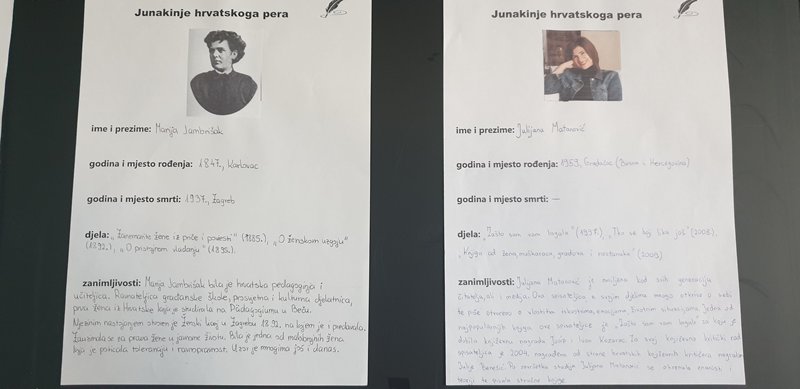 Junakinje hrvatskoga pera
ime i prezime: Marija Jambrišak
godina i mjesto rođenja: 1847., Karlovac
godina i mjesto smrti: 1937., Zagreb
djela: „Znamenite žene iz priče i povesti" (1885.), „O ženskom uzgoju"
(1892.), „O pristojnom vladanju" (1895.)
zanimljivosti: Marija Jambrišak bila je hrvatska pedagoginja i
učiteljica. Ravnateljica građanske škole, prosvjetna i kulturna djelatnica,
prva žena iz Hrvatske koja je studirala na Pädagogiumu u Beču.
Njezinim nastojanjem otvoren je Ženski licej u Zagrebu 1892. na kojem je i predavala.
Zauzimala se za prava žene u javnome životu. Bila je jedna od malobrojnih žena
koja je poticala toleranciju i ravnopravnost. Uzor je mnogima još i danas.
Junakinje hrvatskoga pera
ime i prezime: Julijana Matanović
godina i mjesto rođenja: 1959., Gradačac (Bosna i Hercegovina)
godina i mjesto smrti: —
djela: „Zašto sam vam lagala" (1997.), „Tko se boji lika još" (2008.),
„Knjiga od žena, muškaraca, gradova i rastanaka" (2009.)
zanimljivosti: Julijana Matanović je omiljena kod svih generacija
čitatelja, ali i medija. Ova spisateljica u svojim djelima mnogo otkriva o sebi
te piše otvoreno o vlastitim iskustvima, emocijama, životnim situacijama. Jedna od
najpopularnijih knjiga ove spisateljice je „Zašto sam vam lagala" za koju je
dobila književnu nagradu Josip i Ivan Kozarac. Za svoj književno kritički rad
spisateljica je 2004. nagrađena od strane hrvatskih književnih kritičara nagradom
Julije Benešić. Po završetku studija Julijana Matanović se okrenula znanosti i
teoriji te pisala stručne knjige.